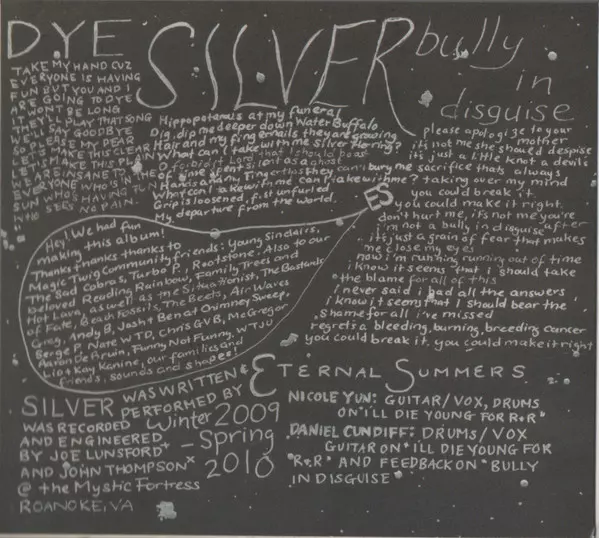 DYE
TAKE MY HAND CUZ
EVERYONE IS HAVING
FUN BUT YOU AND I
ARE GOING TO DYE
IT WON'T BE LONG
THEY'LL PLAY THAT SONG
WE'LL SAY GOODBYE
SO PLEASE MY DEAR
LET'S MAKE THIS CLEAR
LET'S MAKE THIS PLAIN
WE ARE INSANE TO THE
EVERYONE WHO'S
SUN WHO'S HAVING FUN
WHO SEES NO PAIN.
SILVER
Hippopotamus at my funeral
Dig, dip me deeper down Water Buffalo
Hair and my fingernails they are growing
What can I take with me Silver Herring?
O forbid it Lord, that I should boast
of time spent, lent as a
Hands on the Tiger they can't burn me
What can I take with me can I take with me?
Grip is loosened, fist unfurled
My departure from the world.
bully
in
disguise
please apologize to your
mother
it's not me she should despise
it's just a little knot a devil's
sacrifice that always
taking over my mind
you could break it.
you could make it right.
don't hurt me, it's not me you're
after
i'm not a bully in disguise
it's just a grain of fear that makes
me close my eyes
now i'm running running out of time
i know it seems that i should take
the blame for all of this
i never said i had all the answers
i know it seems that I should bear the
shame for all i've missed
regret's a bleeding, burning, breeding cancer
you could break it. you could make it right
ES
Hey! We had fun
making this album!
Thanks thanks thanks to
Magic Twig Community friends: Young Sinclairs,
The Sad Cobras, Turbo P., Rootstone. Also to our
beloved Reading Rainbow, Family Trees and
Hot Lava, as well as the Situationist, The Bastards
of Fate, Beach Fossils, The Beets, Air Waves
Greg, Andy B, Josh + Ben at Chimney Sweep,
Serge P. Nate WTD, Chris GVB, McGregor
Aaron De Bruin, Funny Not Funny, WTJU
Lip + Kay Kanine, our families and
friends, sounds and shapes!
SILVER WAS WRITTEN &
PERFORMED BY ETERNAL SUMMERS
WAS RECORDED Winter 2009
AND ENGINEERED – Spring
BY JOE LUNSFORD+ 2010
AND JOHN THOMPSON×
@ the Mystic Fortress
ROANOKE, VA
NICOLE YUN: GUITAR/VOX, DRUMS
ON "I'LL DIE YOUNG FOR R+R"
DANIEL CUNDIFF: DRUMS/VOX
GUITAR ON "I'LL DIE YOUNG FOR
"R+R" AND FEEDBACK ON "BULLY
IN DISGUISE"